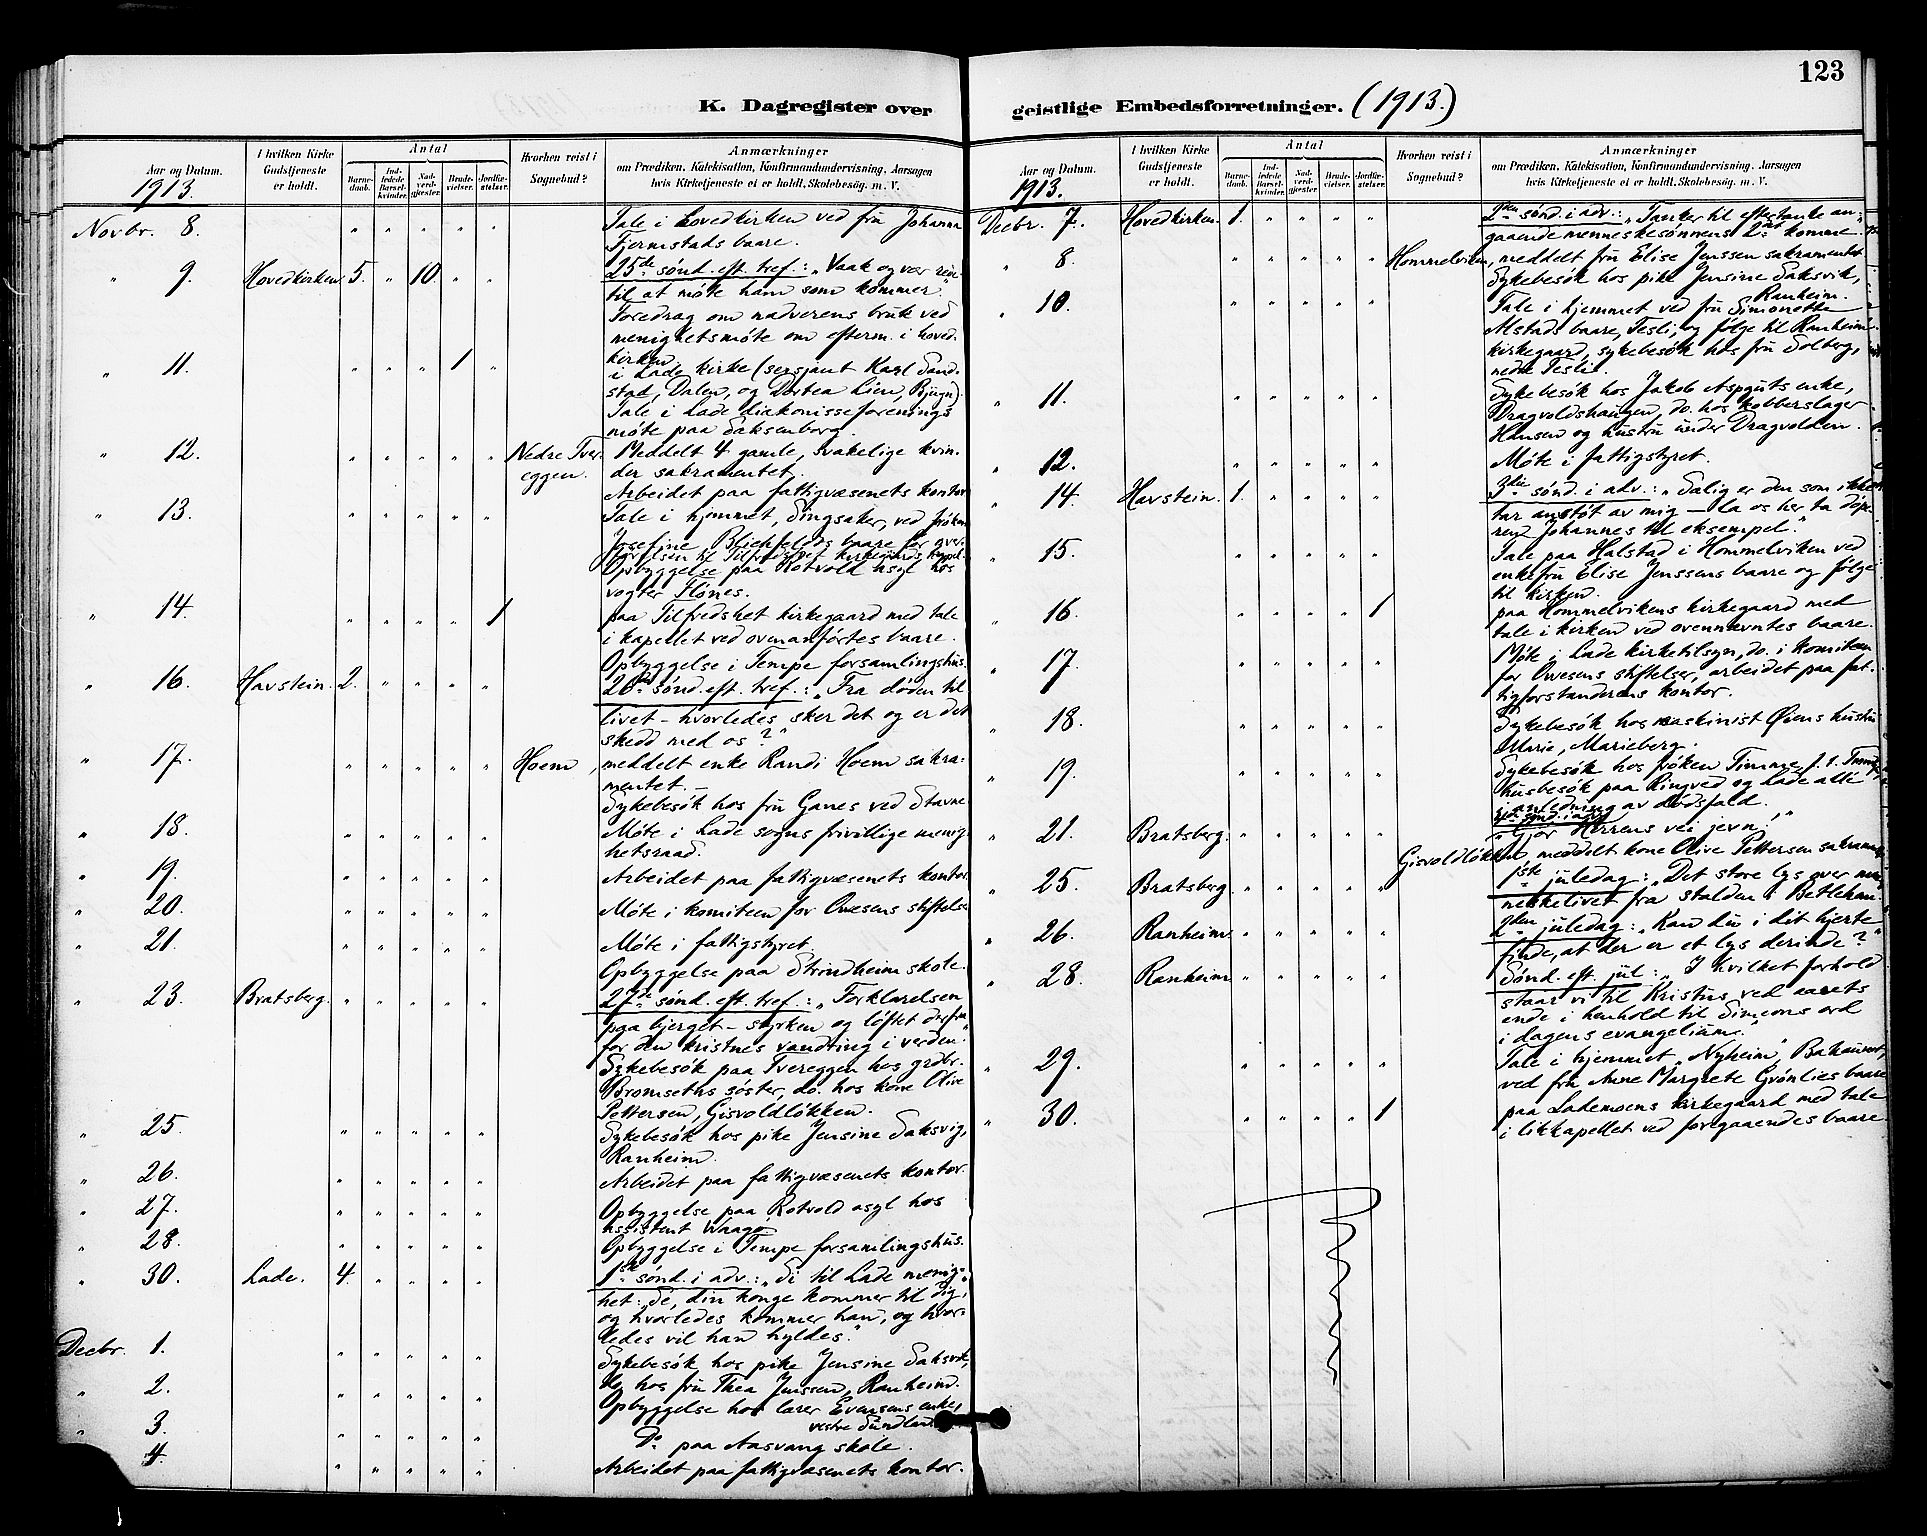 123
K. Dagregister over geistlige Embedsforretninger. (1913.)
Aar og Datum.
1913.
I hvilken Kirke Gudstjeneste er holdt.
Antal
Barnedaab.
Indledede Barselkvinder.
Nadverdgjester.
Brudevielser.
Jordfæstelser.
Hvorhen reist i Sognebud?
Anmærkninger
om Prædiken, Katekisation, Konfirmandundervisning, Aarsagen
hvis Kirketjeneste ei er holdt, Skolebesøg. m. V.
Novbr. 8. " " " " " Tale i hovedkirken ved fru Johanna
Fjermstads baare.
" 9. Hovedkirken 5. " 10. " " 25de sønd. eft. tref.: "Vaak og vær rede
til at møte ham som kommer."
Foredrag om nadverens bruk ved
menighetsmøte om efterm. i hoved-
kirken.
" 11. " " " 1 " i Lade kirke (sersjant Karl Sand-
stad, Dalen, og Dortea Lien, Bjugn).
Tale i Lade diakonisseforenings
møte paa Saksenborg.
" 12. " " " " " Nedre Tver-
eggen. Meddelt 4 gamle, svakelige kvin-
der sakramentet.
Arbeidet paa fattigvæsenets kontor
" 13. " " " " " Tale i hjemmet, Singsaker, ved frøken
Josefine Blichfeldts baare før over-
førelsen til Tilfredshet kirkegaards kapel.
Opbyggelse paa Rotvold asyl hos
vogter Flønes.
" 14. " " " " 1 paa Tilfredshet kirkegaard med tale
i kapellet ved ovenanførtes baare.
Opbyggelse i Tempe forsamlingshus.
" 16. Havstein. 2. " " " " 26de sønd. eft. tref.: "Fra døden til
livet – hvorledes sker det og er det
skedd med os?"
" 17. " " " " " Hoem, meddelt enke Randi Hoem sakra-
mentet. –
Sykebesøk hos fru Ganes ved Stavne
" 18. " " " " " Møte i Lade sogns frivillige menig-
hetsraad.
" 19. " " " " " Arbeidet paa fattigvæsenets kontor
" 20. " " " " " Møte i komiteen for Ovesens stiftelse
" 21. " " " " " Møte i fattigstyret.
Opbyggelse paa Strindheim skole.
" 23. Bratsberg. " " " " " 27de sønd. eft. tref.: "Forklarelsen
paa bjerget – styrken og løftet derfra
for den kristnes vandring i verden."
Sykebesøk paa Tvereggen hos grdbr.
Bromseths søster, do. hos kone Olive
Pettersen, Gisvoldløkken.
" 25. " " " " " Sykebesøk hos pike Jensine Saksvig,
Ranheim.
" 26. " " " " " Arbeidet paa fattigvæsenets kontor.
" 27. " " " " " Opbyggelse paa Rotvold asyl hos
assistent Waagø
" 28. " " " " " Opbyggelse i Tempe forsamlingshus.
" 30. Lade. 4. " " " " 1ste sønd. i adv.: "Si til Lade menig-
het: Se, din konge kommer til dig,
og hvorledes kommer han, og hvor-
ledes vil han hyldes."
Decbr. 1. " " " " " Sykebesøk hos pike Jensine Saksvik,
do. hos fru Thea Jenssen, Ranheim.
" 2. " " " " " Opbyggelse hos lærer Evensens enke,
vestre Sundland.
" 3. " " " " " Do paa Aasvang skole.
" 4. " " " " " Arbeidet paa fattigvæsenets kontor.
Aar og Datum.
1913.
I hvilken Kirke Gudstjeneste er holdt.
Antal
Barnedaab.
Indledede Barselkvinder.
Nadverdgjester.
Brudevielser.
Jordfæstelser.
Hvorhen reist i Sognebud?
Anmærkninger
om Prædiken, Katekisation, Konfirmandundervisning, Aarsagen
hvis Kirketjeneste ei er holdt, Skolebesøg. m. V.
Decbr. 7. Hovedkirken. 1. " " " " 2den sønd. i adv.: "Tanker til eftertanke an-
gaaende menneskesønnens 2det komme."
" 8. " " " " " Hommelviken, meddelt fru Elise Jenssen sakramentet.
Sykebesøk hos pike Jensine Saksvik,
Ranheim.
" 10. " " " " " Tale i hjemmet ved fru Simonette
Alstads baare, Tesli, og følge til Ranheim
kirkegaard, sykebesøk hos fru Solberg,
nedre Tesli.
" 11. " " " " " Sykebesøk hos Jakob Aspguts enke,
Dragvoldshaugen, do. hos kobberslager
Hansen og hustru under Dragvolden.
" 12. " " " " " Møte i fattigstyret.
" 14. Havstein. 1. " " " " 3die sønd. i adv.: "Salig er den som ikke
tar anstøt av mig – La os her ta døpe-
ren Johannes til eksempel."
" 15. " " " " " Tale paa Halstad i Hommelviken ved
enkefru Elise Jenssens baare og følge
til kirken.
" 16. " " " " 1 paa Hommelvikens kirkegaard med
tale i kirken ved ovennævntes baare.
" 17. " " " " " Møte i Lade kirketilsyn, do. i komiteen
for Ovesens stiftelser, arbeidet paa fat-
tigforstanderens kontor.
" 18. " " " " " Sykebesøk hos maskinist Øiens hustru
Marie, Marieberg.
" 19. " " " " " Sykebesøk hos frøken Timme,
husbesøk paa Ringved og Lade allé
i anledning av dødsfald.
" 21. Bratsberg. " " " " " sønd. i adv.
"Gjør Herrens vei jevn!"
Gisvoldløkken, meddelt kone Olive Pettersen sakram.
" 25. Bratsberg. " " " " " 1ste juledag: "Det store lys over men-
neskelivet fra stalden i Betlehem."
" 26. Ranheim. " " " " " 2den juledag: "Kan du i dit hjerte
finde, at der er et lys derinde?"
" 28. Ranheim " " " " " Sønd. eft. jul: "I hvilket forhold
staar vi til Kristus ved aarets
ende i henhold til Simeons ord
i dagens evangelium."
" 29. " " " " " Tale i hjemmet "Nyheim",
ved fru Anne Margrete Grønlies baare
" 30. " " " " 1 paa Lademoens kirkegaard med tale
i likkapellet ved foregaaendes baare